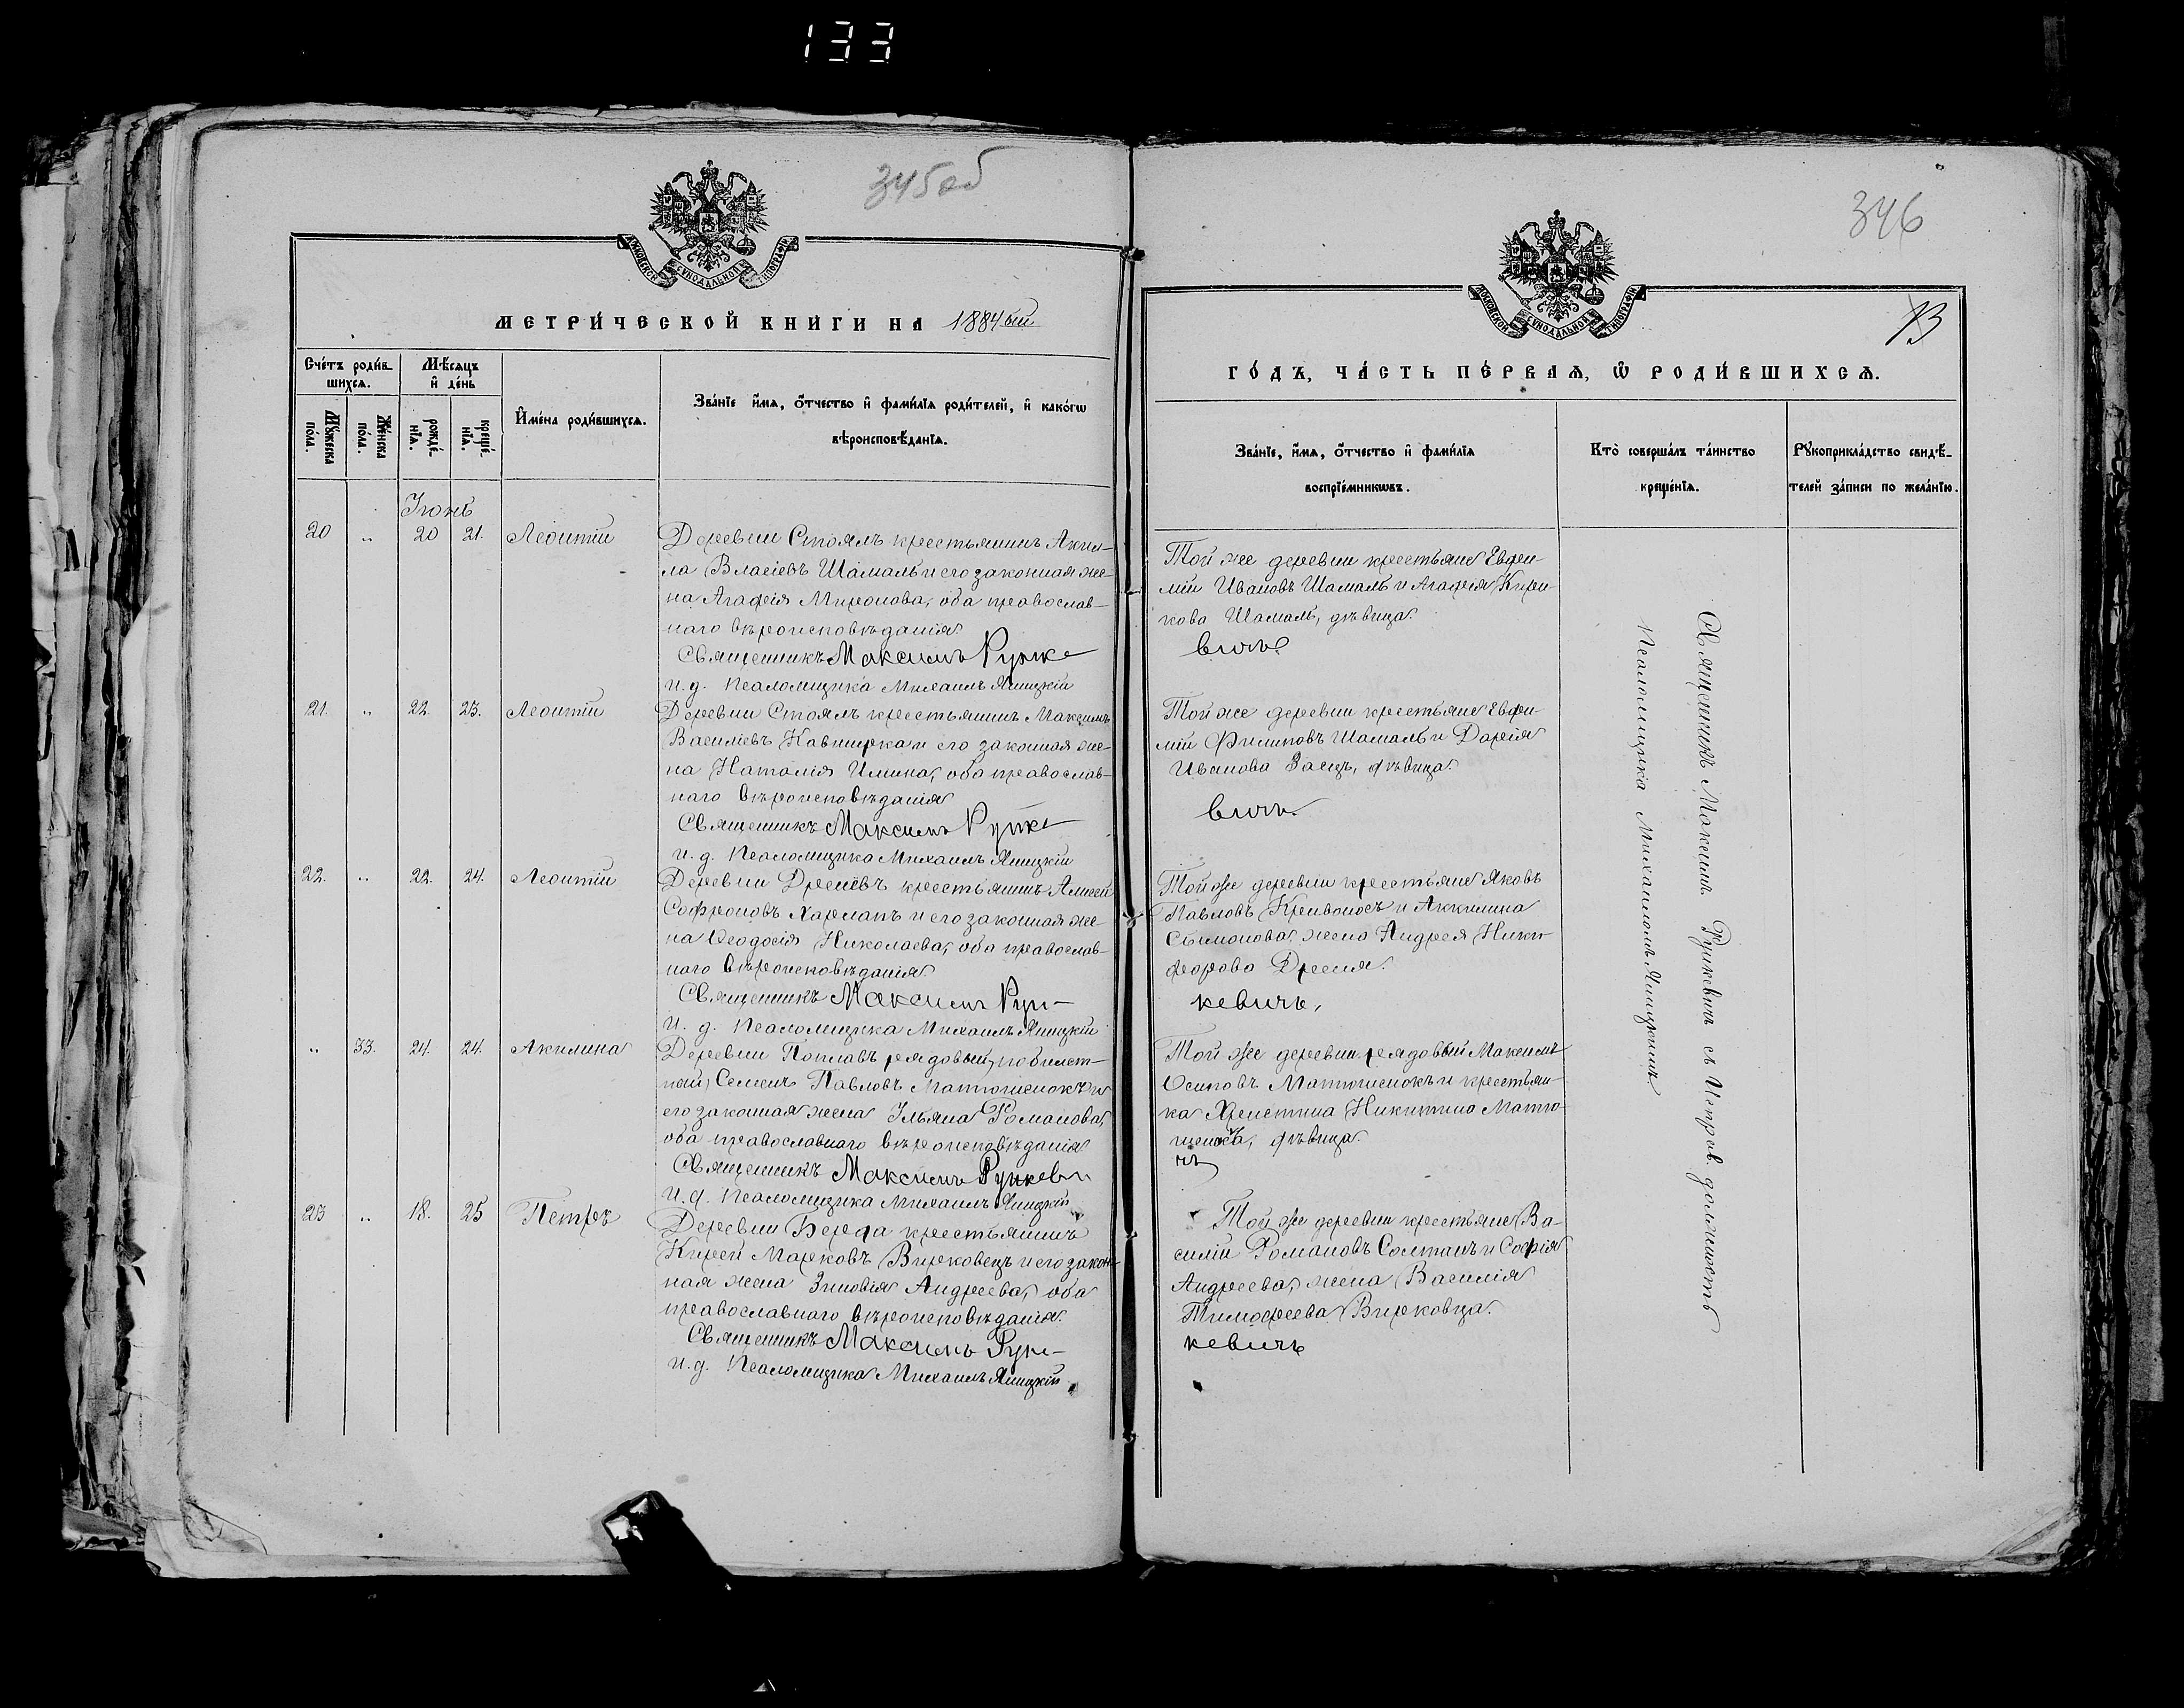 133
345об
МОСКОВСКОЙ СѴНОДАЛЬНОЙ ТИПОГРАФІИ
МЕТРИ́ЧЕСКОЙ КНИ́ГИ НА 1884ый
Сче́тъ роди́вшихся.
Мѣ́сяцъ и҆ де́нь
Мꙋ́жеска по́ла.
Же́нска по́ла.
рожде́нїѧ.
креще́нїѧ.
И҆мена̀ роди́вшихсѧ.
Зва́нїе и҆́мѧ, ѻ҆́тчество и҆ фами́лїѧ роди́телей, и҆ како́гѡ
вѣроисповѣ́данїѧ.
Іюнь
20 „ 20 21. Леонтій
Деревни Стоялъ крестьянинъ Аки-
ла Власіевъ Шамаль и его законная же-
на Агафія Миронова, оба православ-
наго вѣроисповѣданія.
Священникъ Максимъ Рунке
и. д. Псаломщика Михаилъ Яницкій
21. „ 22. 23. Леонтій
Деревни Стоялъ крестьянинъ Максимъ
Василіевъ Кавтирка и его законная же-
на Наталія Ильина, оба православ-
наго вѣроисповѣданія
Священникъ Максимъ Рунке
и. д. Псаломщика Михаилъ Яницкій
22. „ 22. 24. Леонтій
Деревни Дреневъ крестьянинъ Алисей
Софроновъ Харланъ и его законная же-
на Ѳеодосія Николаева, оба православ-
наго вѣроисповѣданія.
Священникъ Максимъ Рун-
и. д. Псаломщика Михаилъ Яницкій
„ 33. 24. 24. Акилина
Деревни Поплавъ рядовый, по билет-
ной, Семенъ Павловъ Матюшенокъ и
его законная жена Ульяна Романова,
оба православнаго вѣроисповѣданія
Священникъ Максимъ Рункеви
и. д. Псаломщика Михаилъ Яницкій
23 „ 18. 25 Петръ
Деревни Береда крестьянинъ
Кирей Марковъ Вирковецъ и его закон-
ная жена Зиновія Андреева, оба
православнаго вѣроисповѣданія.
Священникъ Максимъ Рун-
и. д. Псаломщика Михаилъ Яницкій
346
МОСКОВСКОЙ СѴНОДАЛЬНОЙ ТИПОГРАФІИ
ГО́ДЪ, ЧА́СТЬ ПЕ́РВАѦ, Ѡ҆ РОДИ́ВШИХСѦ.
Зва́нїе, и҆́мѧ, ѻ҆́тчество и҆ фами́лїѧ
воспрїе́мникѡвъ.
Кто̀ соверша́лъ та́инство
креще́нїѧ.
Рꙋкоприкла́дство свидѣ́-
телей за́писи по жела́нїю.
Той же деревни крестьяне Евфи-
мій Ивановъ Шамаль и Агафія Кири-
кова Шамаль, дѣвица.
вичъ.
Той же деревни крестьяне Евфи-
мій Филиповъ Шамаль и Дарія
Иванова Заецъ, дѣвица.
вичъ.
Той же деревни крестьяне Яковъ
Павловъ Кривоносъ и Аккилина
Симонова, жена Андрея Ники-
форова Дреня.
кевичъ,
Той же деревни рядовый Максимъ
Осиповъ Матюшенокъ и крестьян-
ка Христина Никитина Матю-
шенокъ, дѣвица.
чъ
Той же деревни крестьяне Ва-
силій Романовъ Солтанъ и Софія
Андреева, жена Василія
Тимофеева Вирковца.
кевичъ
Священникъ Максимъ Рункевичъ съ Исправ. должность
Псаломщика Михаиломъ Яницкимъ